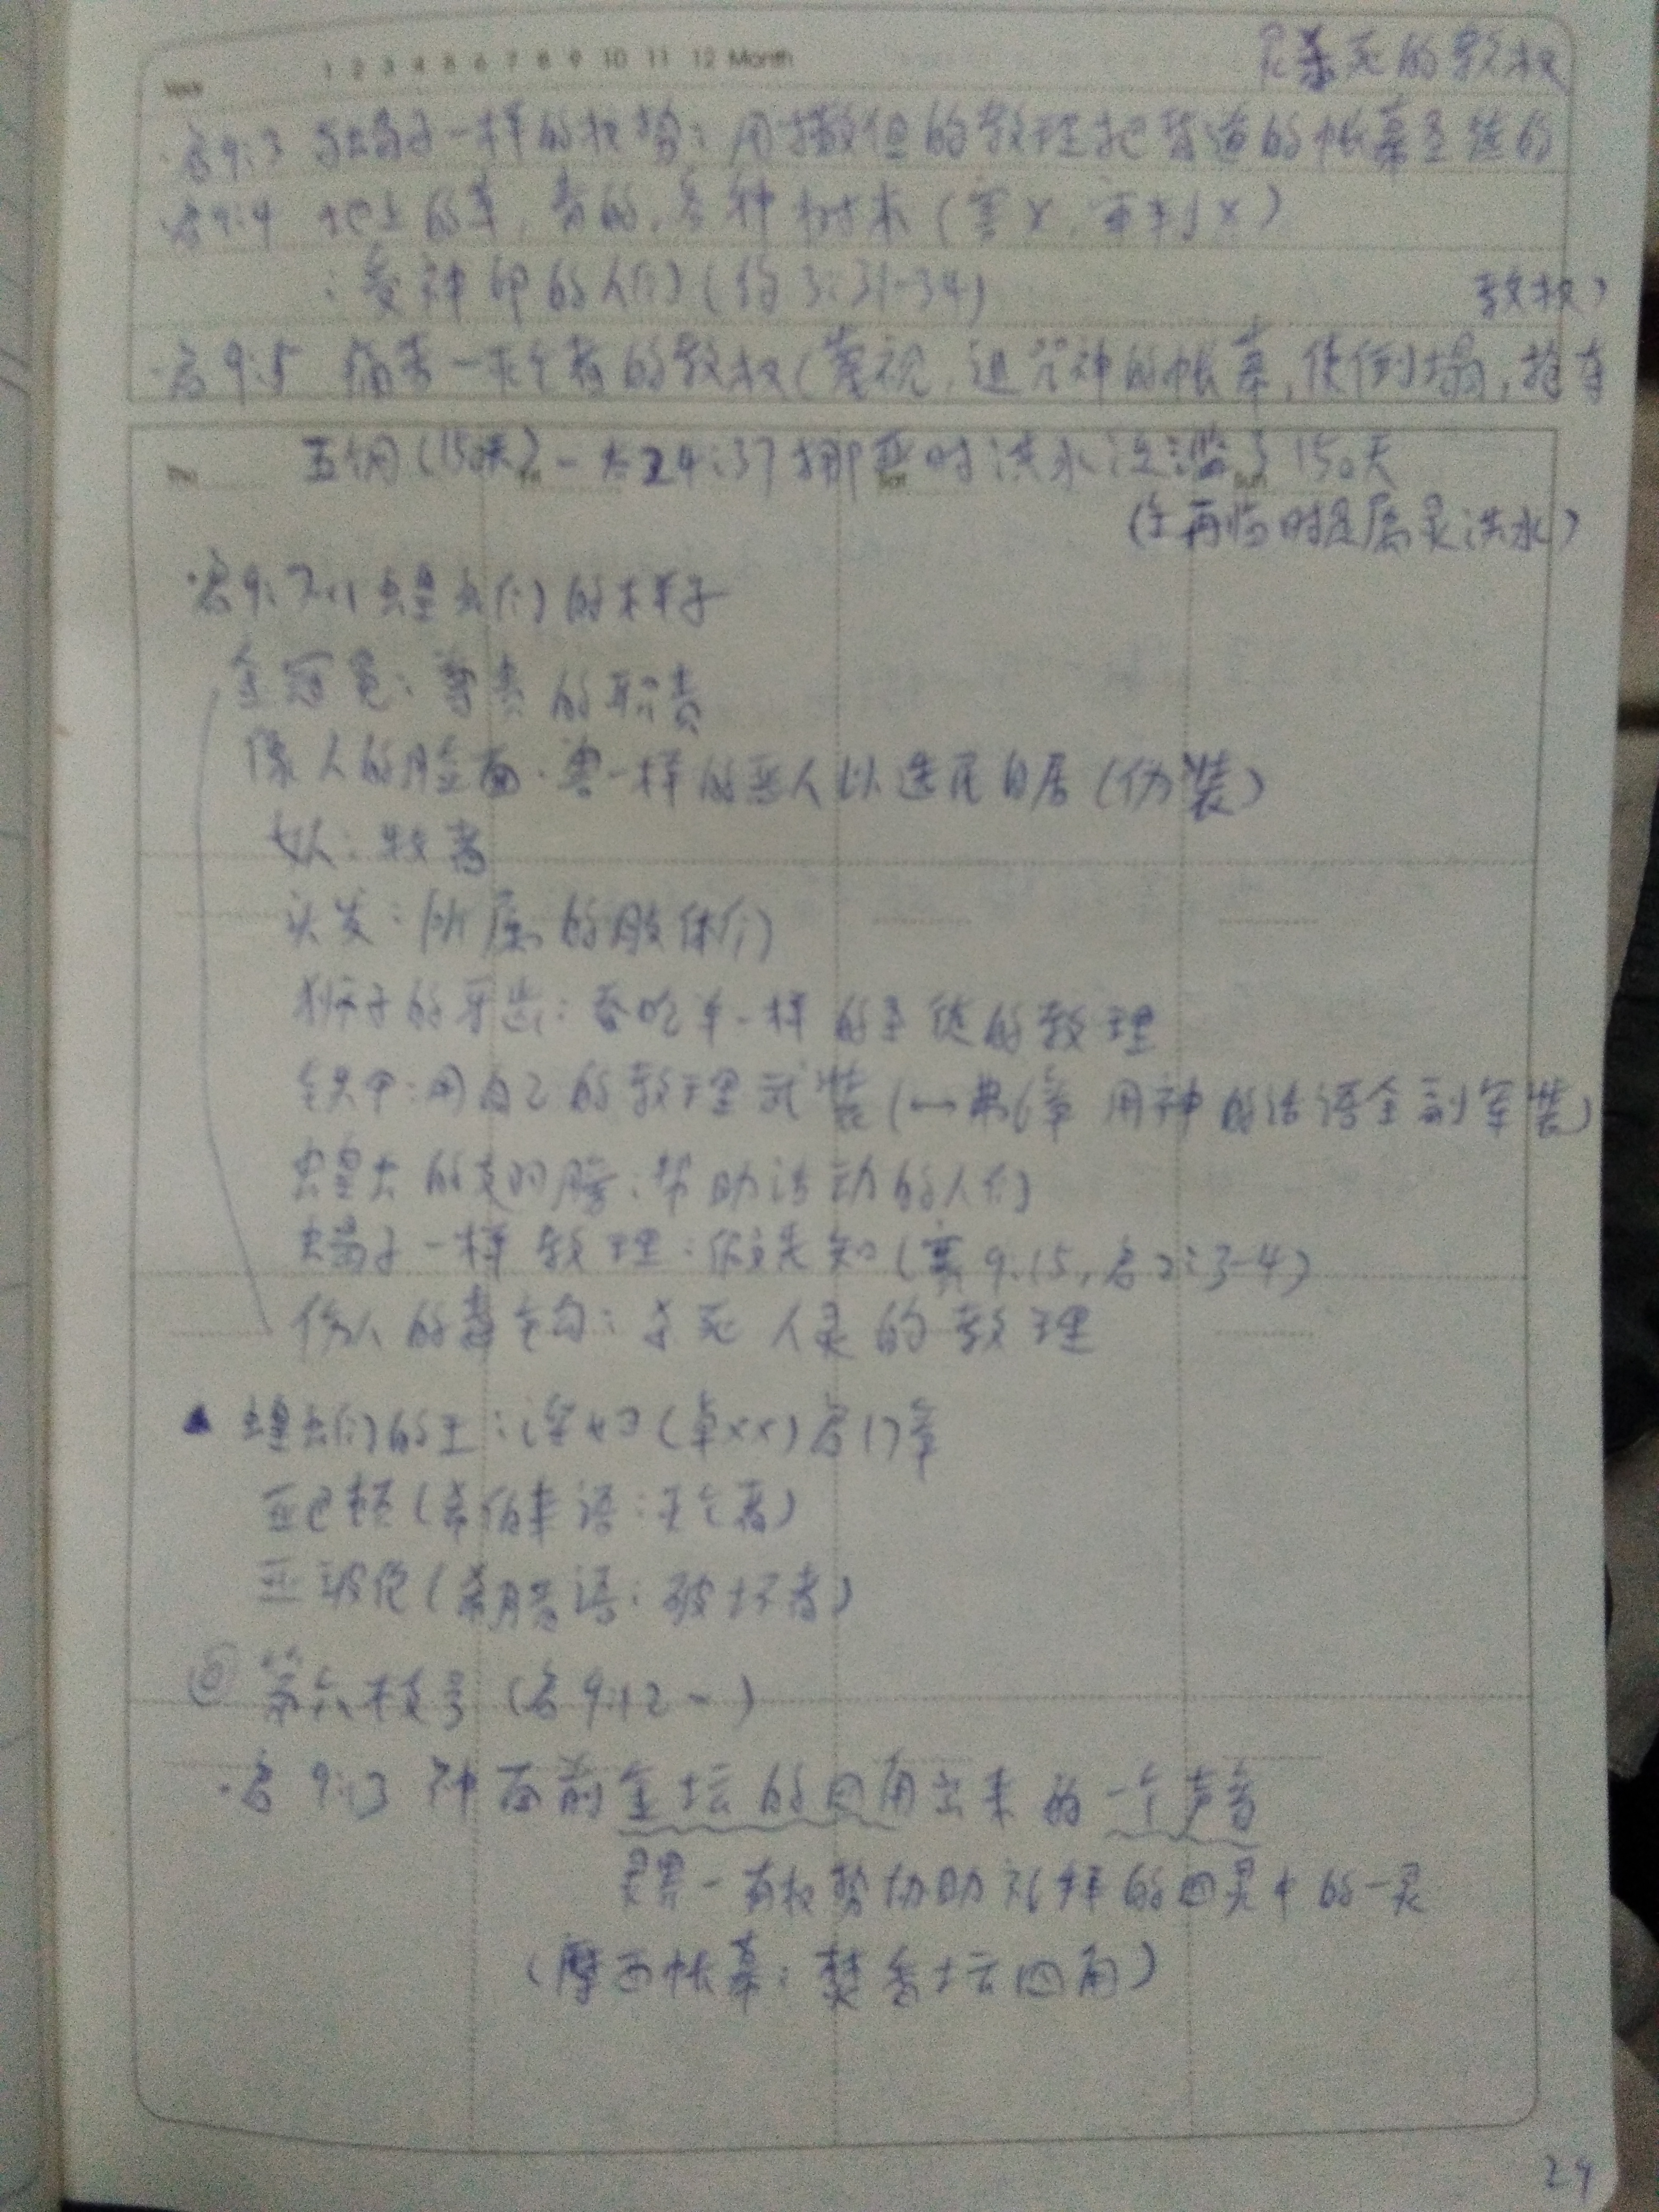 Week 1 2 3 4 5 6 7 8 9 10 11 12 Month
杀死的教权
·启9:3 蝎子一样的权势：用撒但的教理把背道的帐幕圣徒的
·启9:4 地上的草，青的，各种树木（害×，审判×）
：受神印的人们（约3:31-34）
教权）
·启9:5 痛苦一灭亡者的教权（蔑视，诅咒神的帐幕，使倒塌，抢夺
五个月（150天）-太24:37挪亚时洪水泛滥了150天
Thu Fri Sat Sun
（主再临时是属灵洪水）
·启9:7-11 蝗虫们的样子
金冠冕：尊贵的职责
像人的脸面：兽一样的恶人以选民自居（伪装）
女人：牧者
头发：所属的肢体们
狮子的牙齿：吞吃羊一样的圣徒的教理
铁甲：用自己的教理武装（↔弗6章 用神的话语全副军装）
蝗虫的翅膀：帮助活动的人们
蝎子一样教理：假先知（赛9:15，启2:3-4）
伤人的毒钩：杀死人灵的教理
▲ 蝗虫们的王：淫妇（卓××）启17章
亚巴顿（希伯来语：灭亡者）
亚玻伦（希腊语：破坏者）
⑥ 第六枝号（启9:12-）
·启9:13 神面前金坛的四角出来的一个声音
灵界-有权势协助礼拜的四灵中的一灵
（摩西帐幕：焚香坛四角）
29